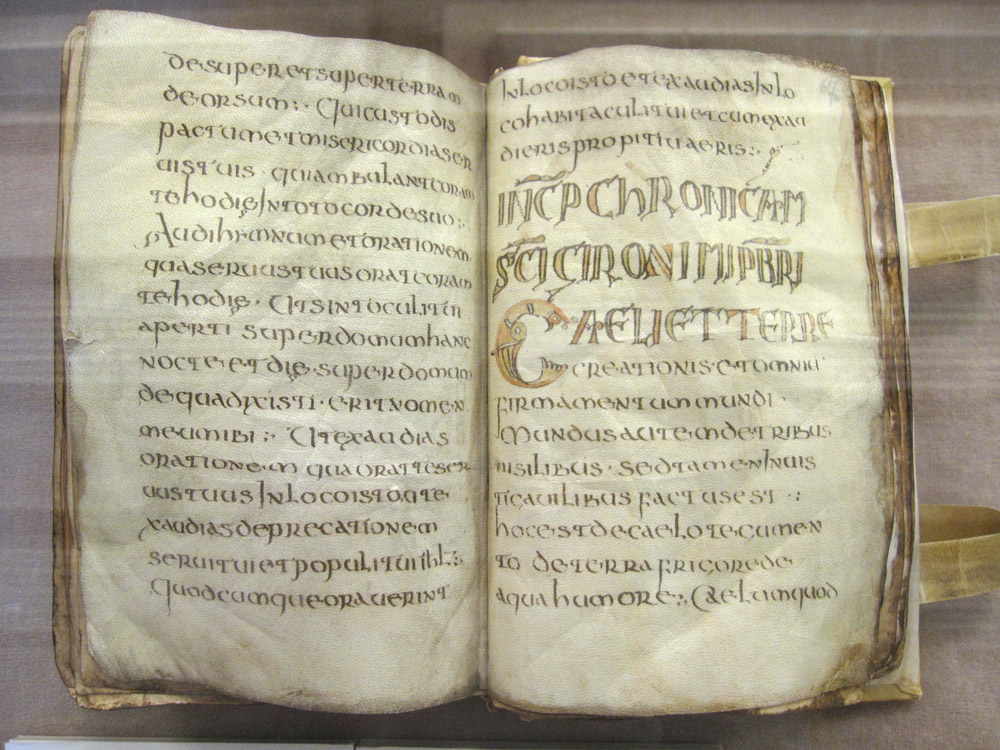 desuperetsuperterram
deorsum;· Quicustodis
pactumetmisericordiaser
uistuis · quiambulantcoram
tehodieIntotocordesuo;·
Audihymnumetorationem
quaseruustuusoratcoram
tehodie · Utsintoculitui
aperti superdomumhanc
nocteetdie·superdomum
dequadixisti · eritnomen
meumibi;· Utexaudias
orationem quaoratteser
uustuusInlocoistoute
xaudiasdeprecationem
seruituietpopulituiihl;·
Quodcumqueorauerint
Inlocoistoetexaudiasinlo
cohabitaculituietcumexau
dierispropitiuseris;·
INCP CHRONICAM
SCI GIRONIMI PBRI
CAELI ET TERRE
CREATIONIS·ETOMNIU
firmamentummundi ·
Mundusautemdetribus
uisilibus · sedtamenInuis
ticauilibus factusest ·:
hocestdecaelotegumen
to deterrafrigorede
aquahumore;· Caelumquod